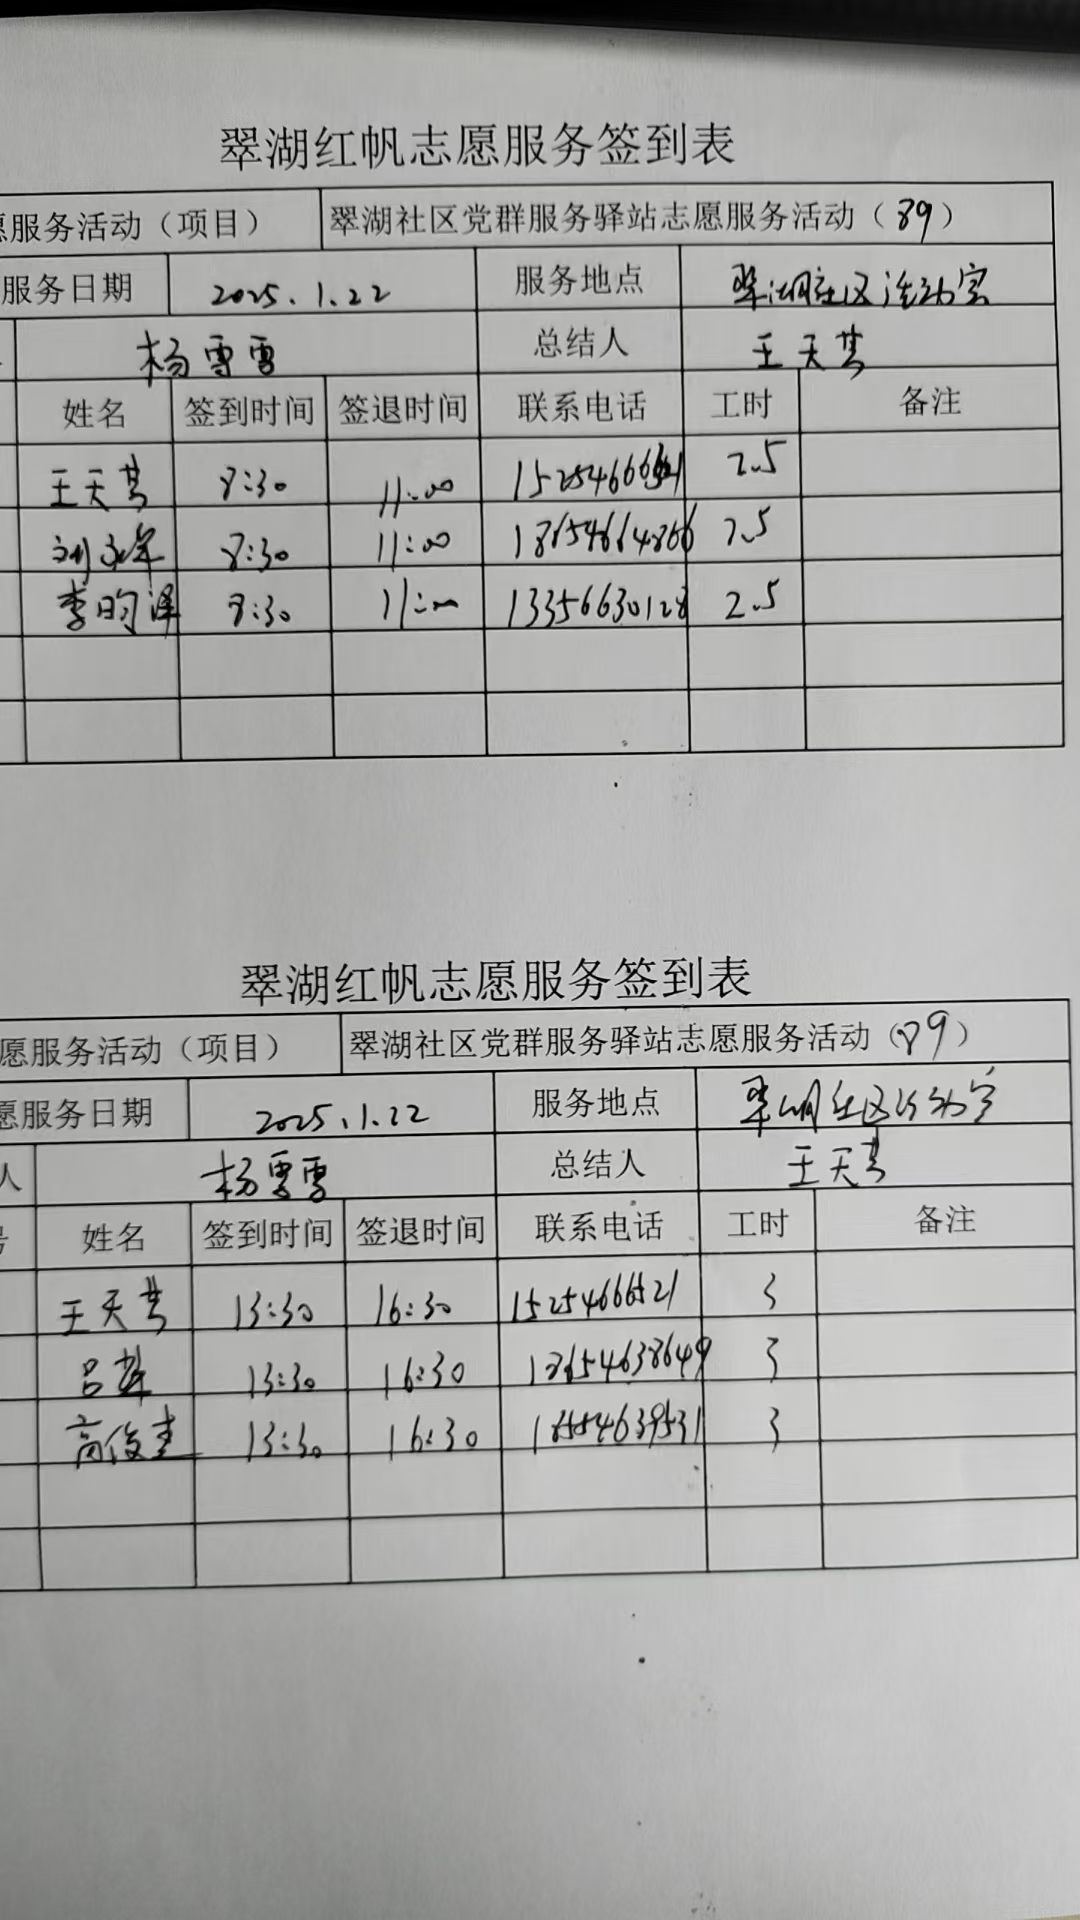 翠湖红帆志愿服务签到表
愿服务活动（项目） 翠湖社区党群服务驿站志愿服务活动（89）
服务日期 2025.1.22 服务地点 翠湖社区活动室
杨雪雪 总结人 王天其
姓名 签到时间 签退时间 联系电话 工时 备注
王天其 8:30 11:00 2.5
刘永军 8:30 11:00 18654664866 2.5
李昀泽 8:30 11:00 13356630128 2.5
翠湖红帆志愿服务签到表
愿服务活动（项目） 翠湖社区党群服务驿站志愿服务活动（89）
愿服务日期 2025.1.22 服务地点 翠湖社区活动室
人 杨雪雪 总结人 王天其
号 姓名 签到时间 签退时间 联系电话 工时 备注
王天其 13:30 16:30 15254666521 3
吕 13:30 16:30 18654638649 3
高俊杰 13:30 16:30 3